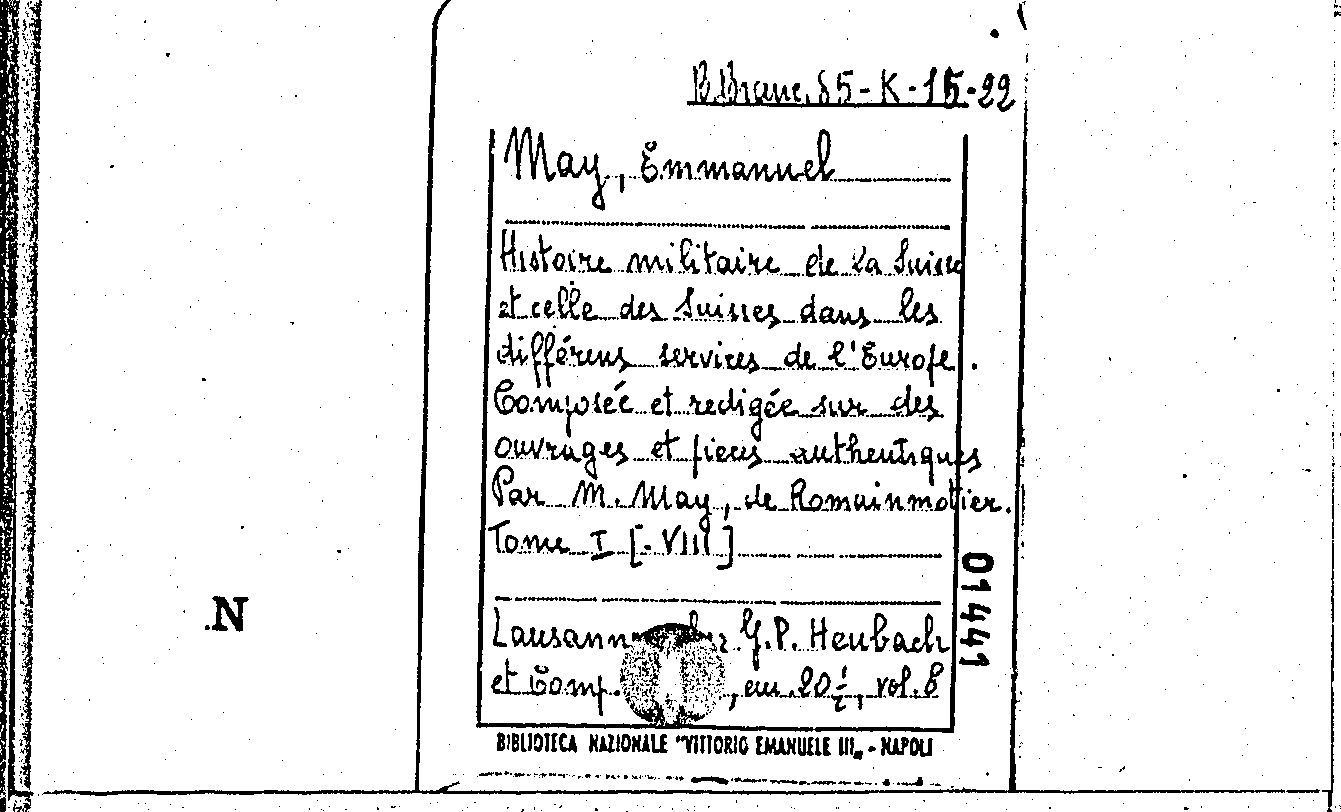 B. Branc. 85-K-15-22
May, Emmanuel
Histoire militaire de la Suisse
et celle des Suisses dans les
différens services de l'Europe.
Composée et redigée sur des
ouvrages et pieces authentiques
Par M. May, de Romainmotier.
Tome I [-VIII]
01441
.N
Lausann G.P. Heubach
et Comp. , cm. 20½, vol. 8
BIBLIOTECA NAZIONALE "VITTORIO EMANUELE III„ - NAPOLI